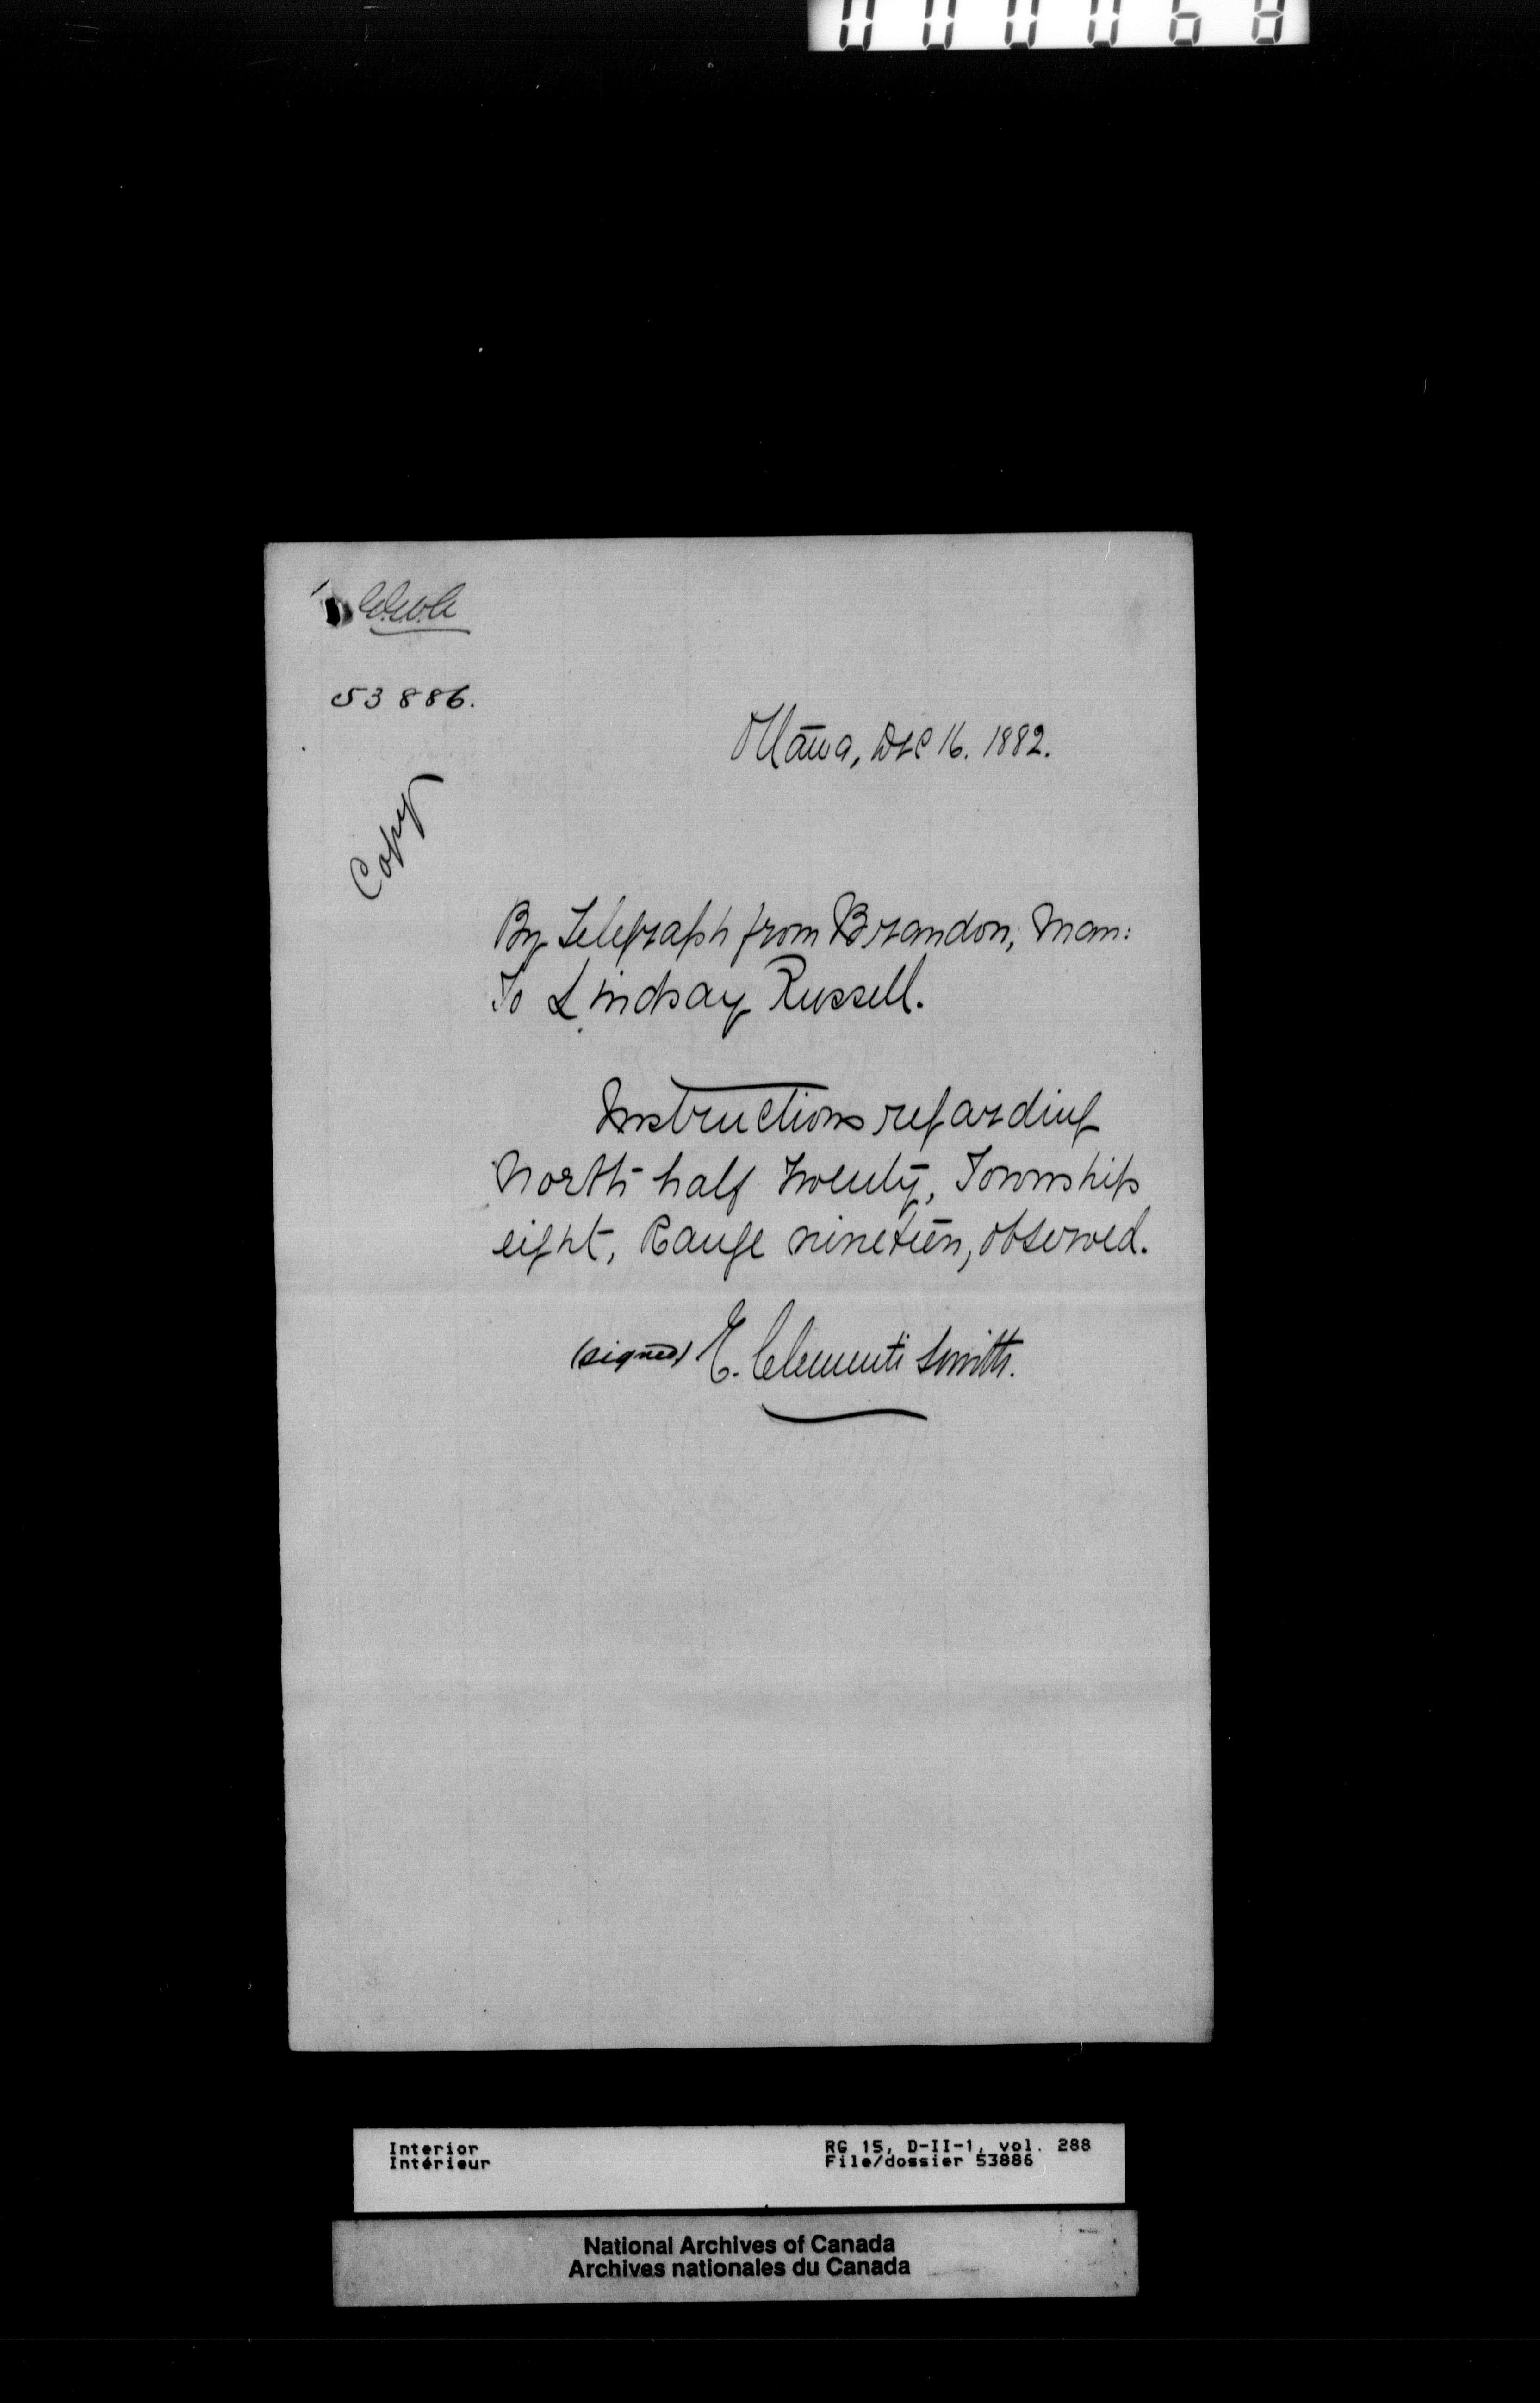 000068
53886.
Ottawa, Dec 16. 1882.
Copy
By Telegraph from Brandon, Man:
To Lindsay Russell.
Instructions regarding
North half Twenty, Township
eight, Range nineteen, observed.
(signed) E. Clementi Smith.
Interior
Intérieur
RG 15, D-II-1, vol. 288
File/dossier 53886
National Archives of Canada
Archives nationales du Canada